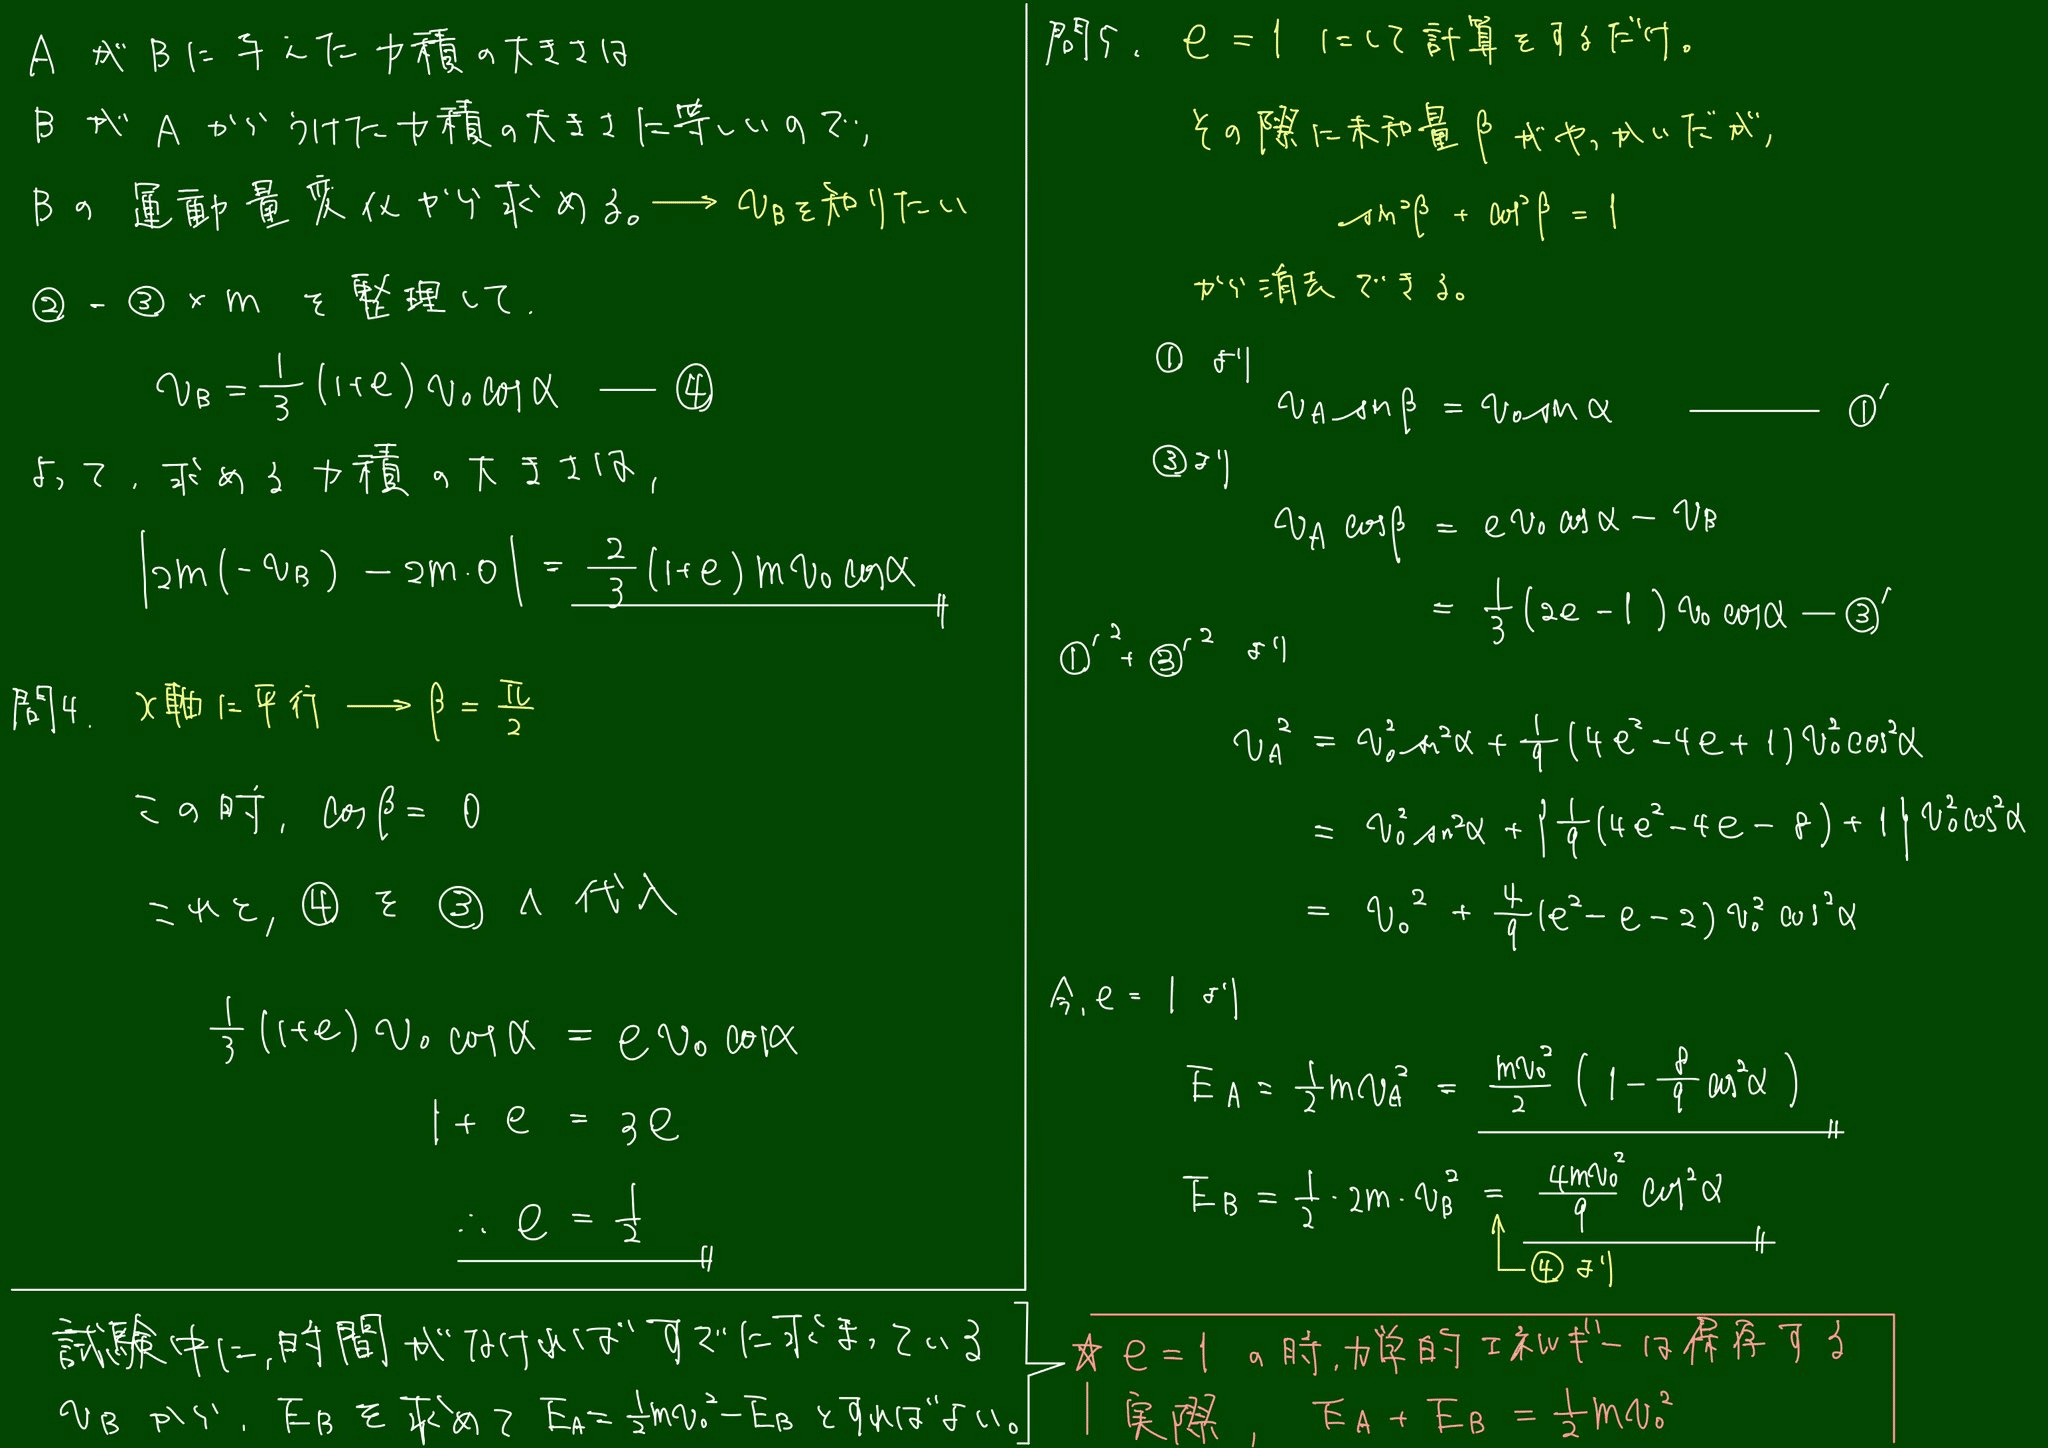 A が B に与えた力積の大きさは
B が A からうけた力積の大きさに等しいので,
B の運動量変化から求める。→ v_B を知りたい
② - ③ × m を整理して.
v_B = 1/3 (1+e) v_0 cosα — ④
よって. 求める力積の大きさは,
|2m(-v_B) - 2m・0| = 2/3 (1+e) m v_0 cosα
問4. x軸に平行 → β = π/2
この時, cosβ = 0
これと, ④ を ③ へ代入
1/3 (1+e) v_0 cosα = e v_0 cosα
1 + e = 3e
∴ e = 1/2
問5. e = 1 にして計算をするだけ。
その際に未知量 β がやっかいだが,
sin²β + cos²β = 1
から消去できる。
① より
v_A sinβ = v_0 sinα — ①'
③ より
v_A cosβ = e v_0 cosα - v_B
= 1/3 (2e - 1) v_0 cosα — ③'
①'² + ③'² より
v_A² = v_0² sin²α + 1/9 (4e² - 4e + 1) v_0² cos²α
= v_0² sin²α + {1/9 (4e² - 4e - 8) + 1} v_0² cos²α
= v_0² + 4/9 (e² - e - 2) v_0² cos²α
今, e = 1 より
E_A = 1/2 m v_A² = mv_0²/2 (1 - 8/9 cos²α)
E_B = 1/2・2m・v_B² = 4mv_0²/9 cos²α
④ より
☆ e = 1 の時, 力学的エネルギーは保存する
実際, E_A + E_B = 1/2 m v_0²
試験中に, 時間がなければすでに求まっている
v_B から, E_B を求めて E_A = 1/2 m v_0² - E_B とすればよい。